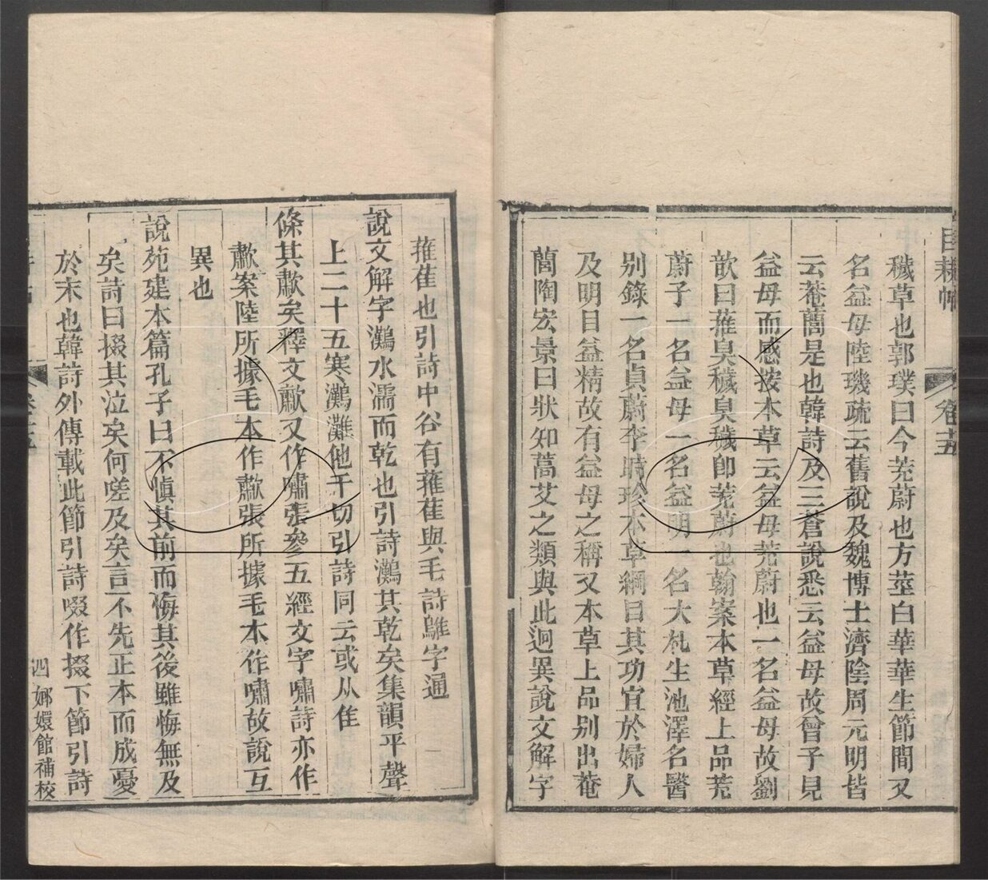 目耕帖 卷十五
穢草也郭璞曰今茺蔚也方莖白華華生節間又
名益母陸璣疏云舊說及魏博士濟陰周元明皆
云菴䕡是也韓詩及三蒼說悉云益母故曾子見
益母而感按本草云益母茺蔚也一名益母故劉
歆曰蓷臭穢臭穢卽茺蔚也翰案本草經上品茺
蔚子一名益母一名益明一名大札生池澤名醫
别錄一名貞蔚李時珍本草綱目其功宜於婦人
及明目益精故有益母之稱又本草上品别出菴
䕡陶宏景曰狀如蒿艾之類與此迥異說文解字
蓷萑也引詩中谷有蓷萑與毛詩鵻字通
說文解字灘水濡而乾也引詩灘其乾矣集韻平聲
上二十五寒灘灘他干切引詩同云或从隹
條其歗矣釋文歗又作嘯張參五經文字嘯詩亦作
歗案陸所據毛本作歗張所據毛本作嘯故說互
異也
說苑建本篇孔子曰不愼其前而悔其後雖悔無及
矣詩曰掇其泣矣何嗟及矣言不先正本而成憂
於末也韓詩外傳載此節引詩啜作掇下節引詩
四 嫏嬛館補校